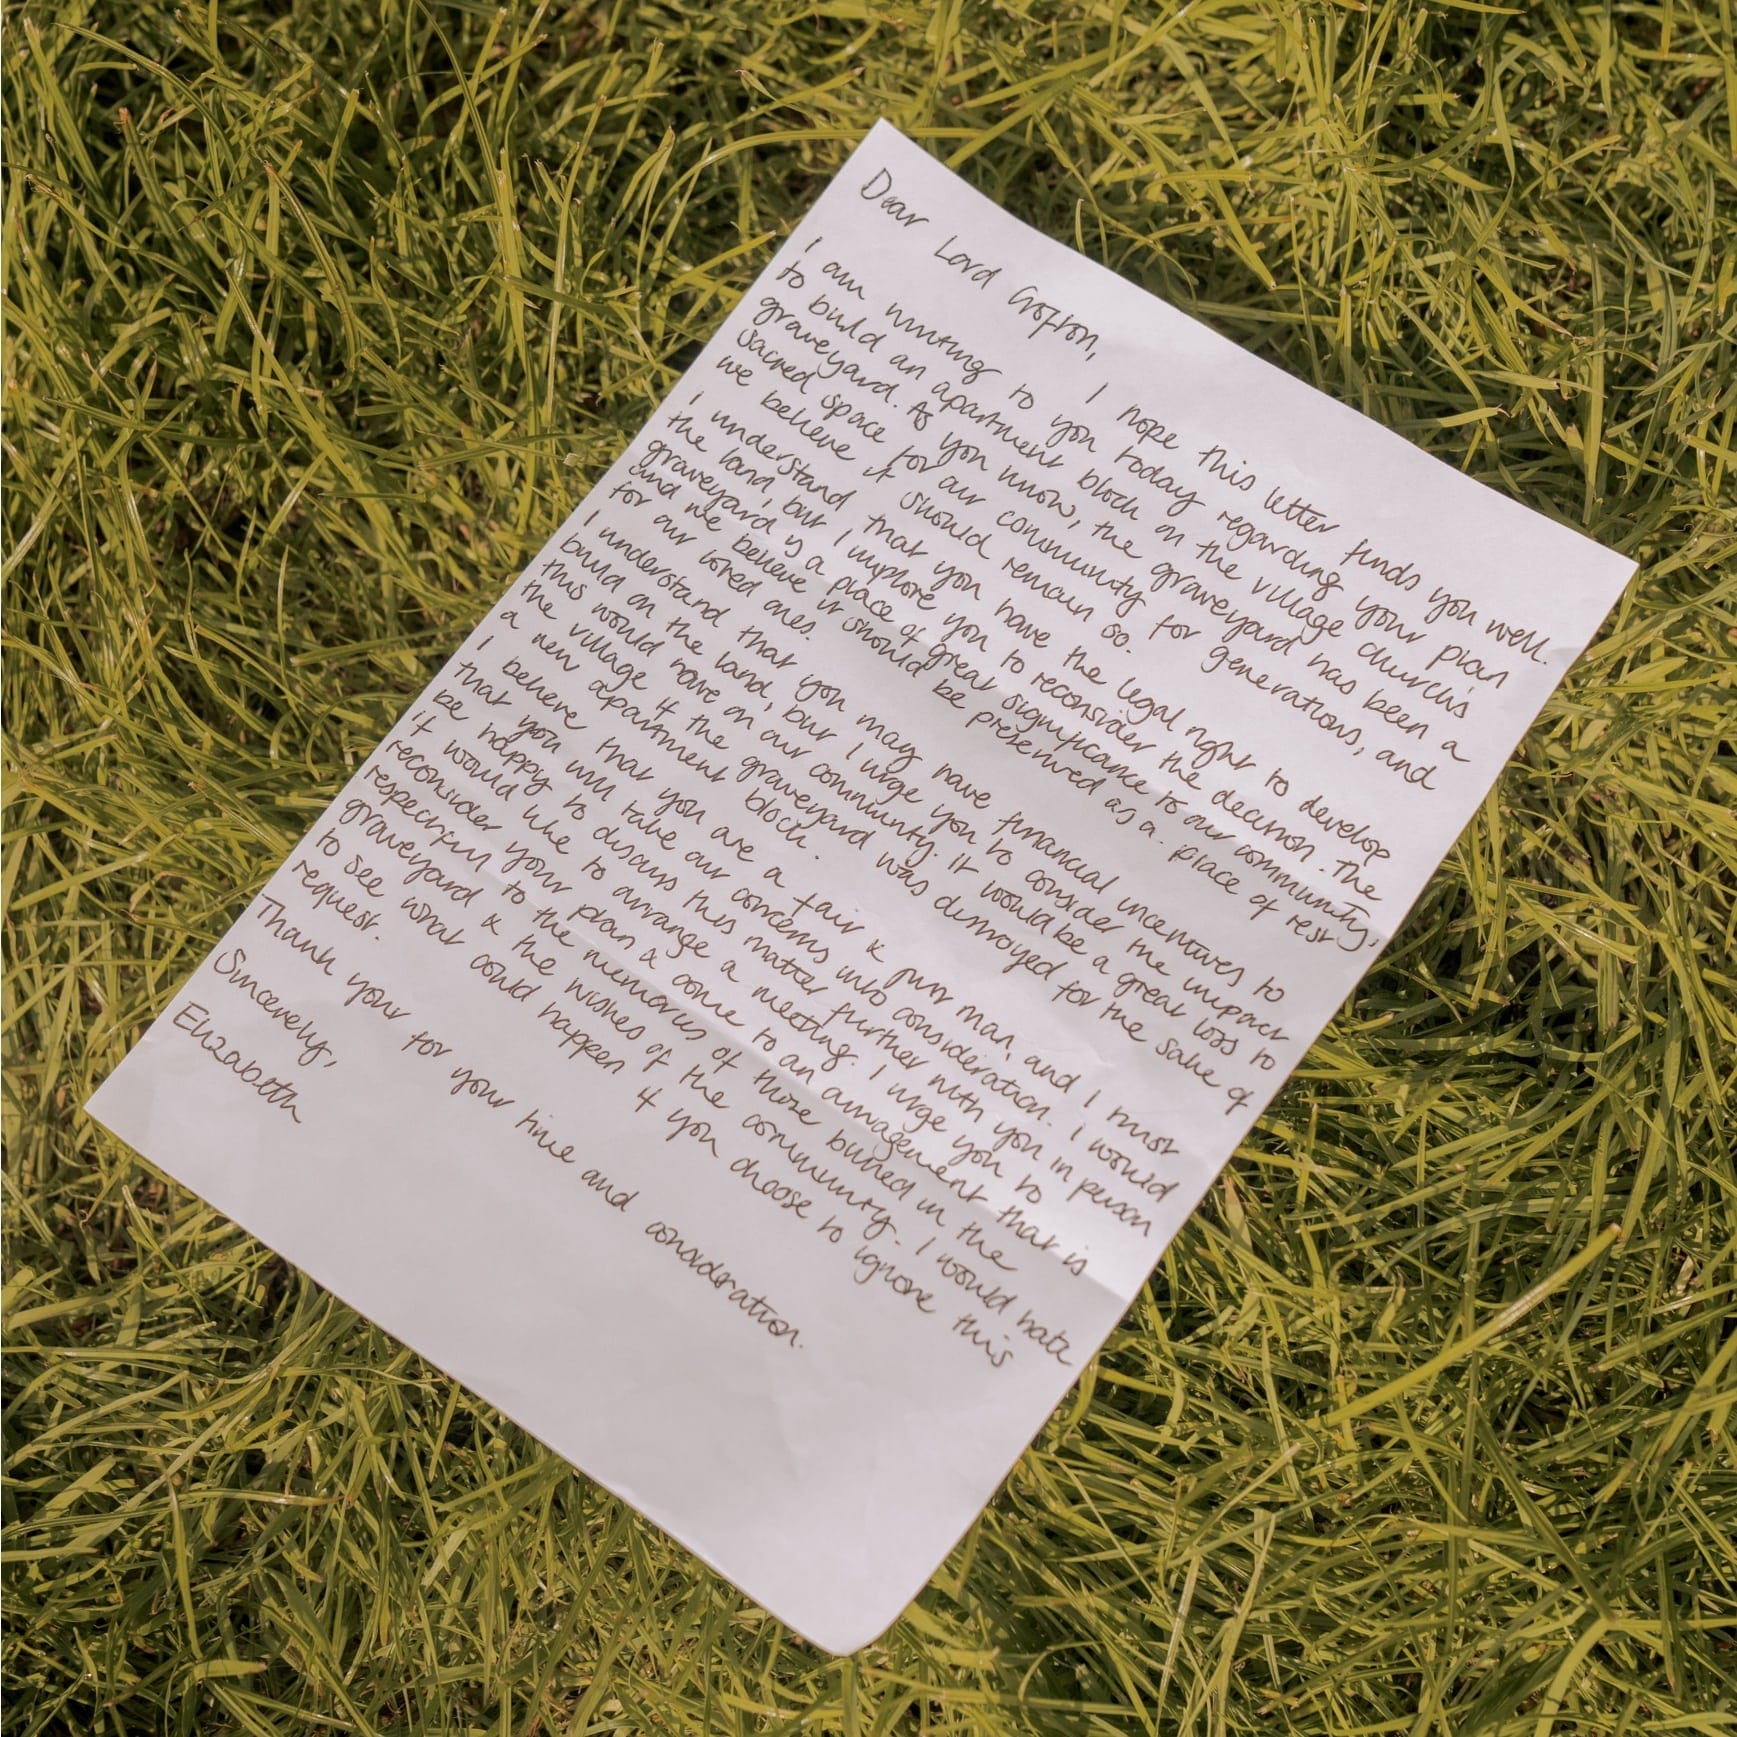 Dear Lord Grofton,
I hope this letter finds you well.
I am writing to you today regarding your plan
to build an apartment block on the village church's
graveyard. As you know, the graveyard has been a
sacred space for our community for generations, and
we believe it should remain so.
I understand that you have the legal right to develop
the land, but I implore you to reconsider the decision. The
graveyard is a place of great significance to our community,
and we believe it should be preserved as a place of rest
for our loved ones.
I understand that you may have financial incentives to
build on the land, but I urge you to consider the impact
this would have on our community. It would be a great loss to
the village if the graveyard was destroyed for the sake of
a new apartment block.
I believe that you are a fair & man, and I must
that you will take our concerns into consideration. I would
be happy to discuss this matter further with you in person
if would like to arrange a meeting. I urge you to
reconsider your plan & come to an arragement that is
respectful to the memories of those buried in the
graveyard & the wishes of the community. I would hate
to see what could happen if you choose to ignore this
request.
Thank your for your time and consideration.
Sincerely,
Elizabeth